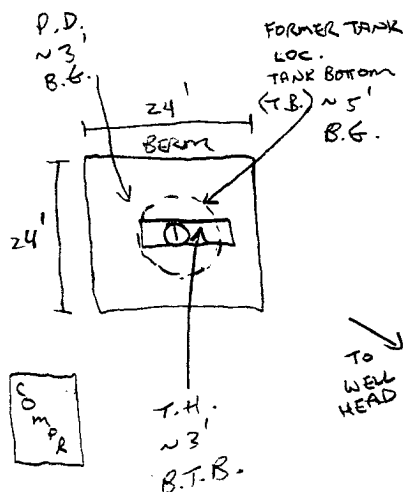 P.D.
~3'
B.G.
FORMER TANK
LOC.
TANK BOTTOM
(T.B.) ~5'
B.G.
24'
BERM
24'
①
TO
WELL
HEAD
COMPR
T.H.
~3'
B.T.B.